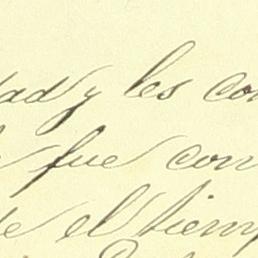 dad y les con
fue con
de el tiemp